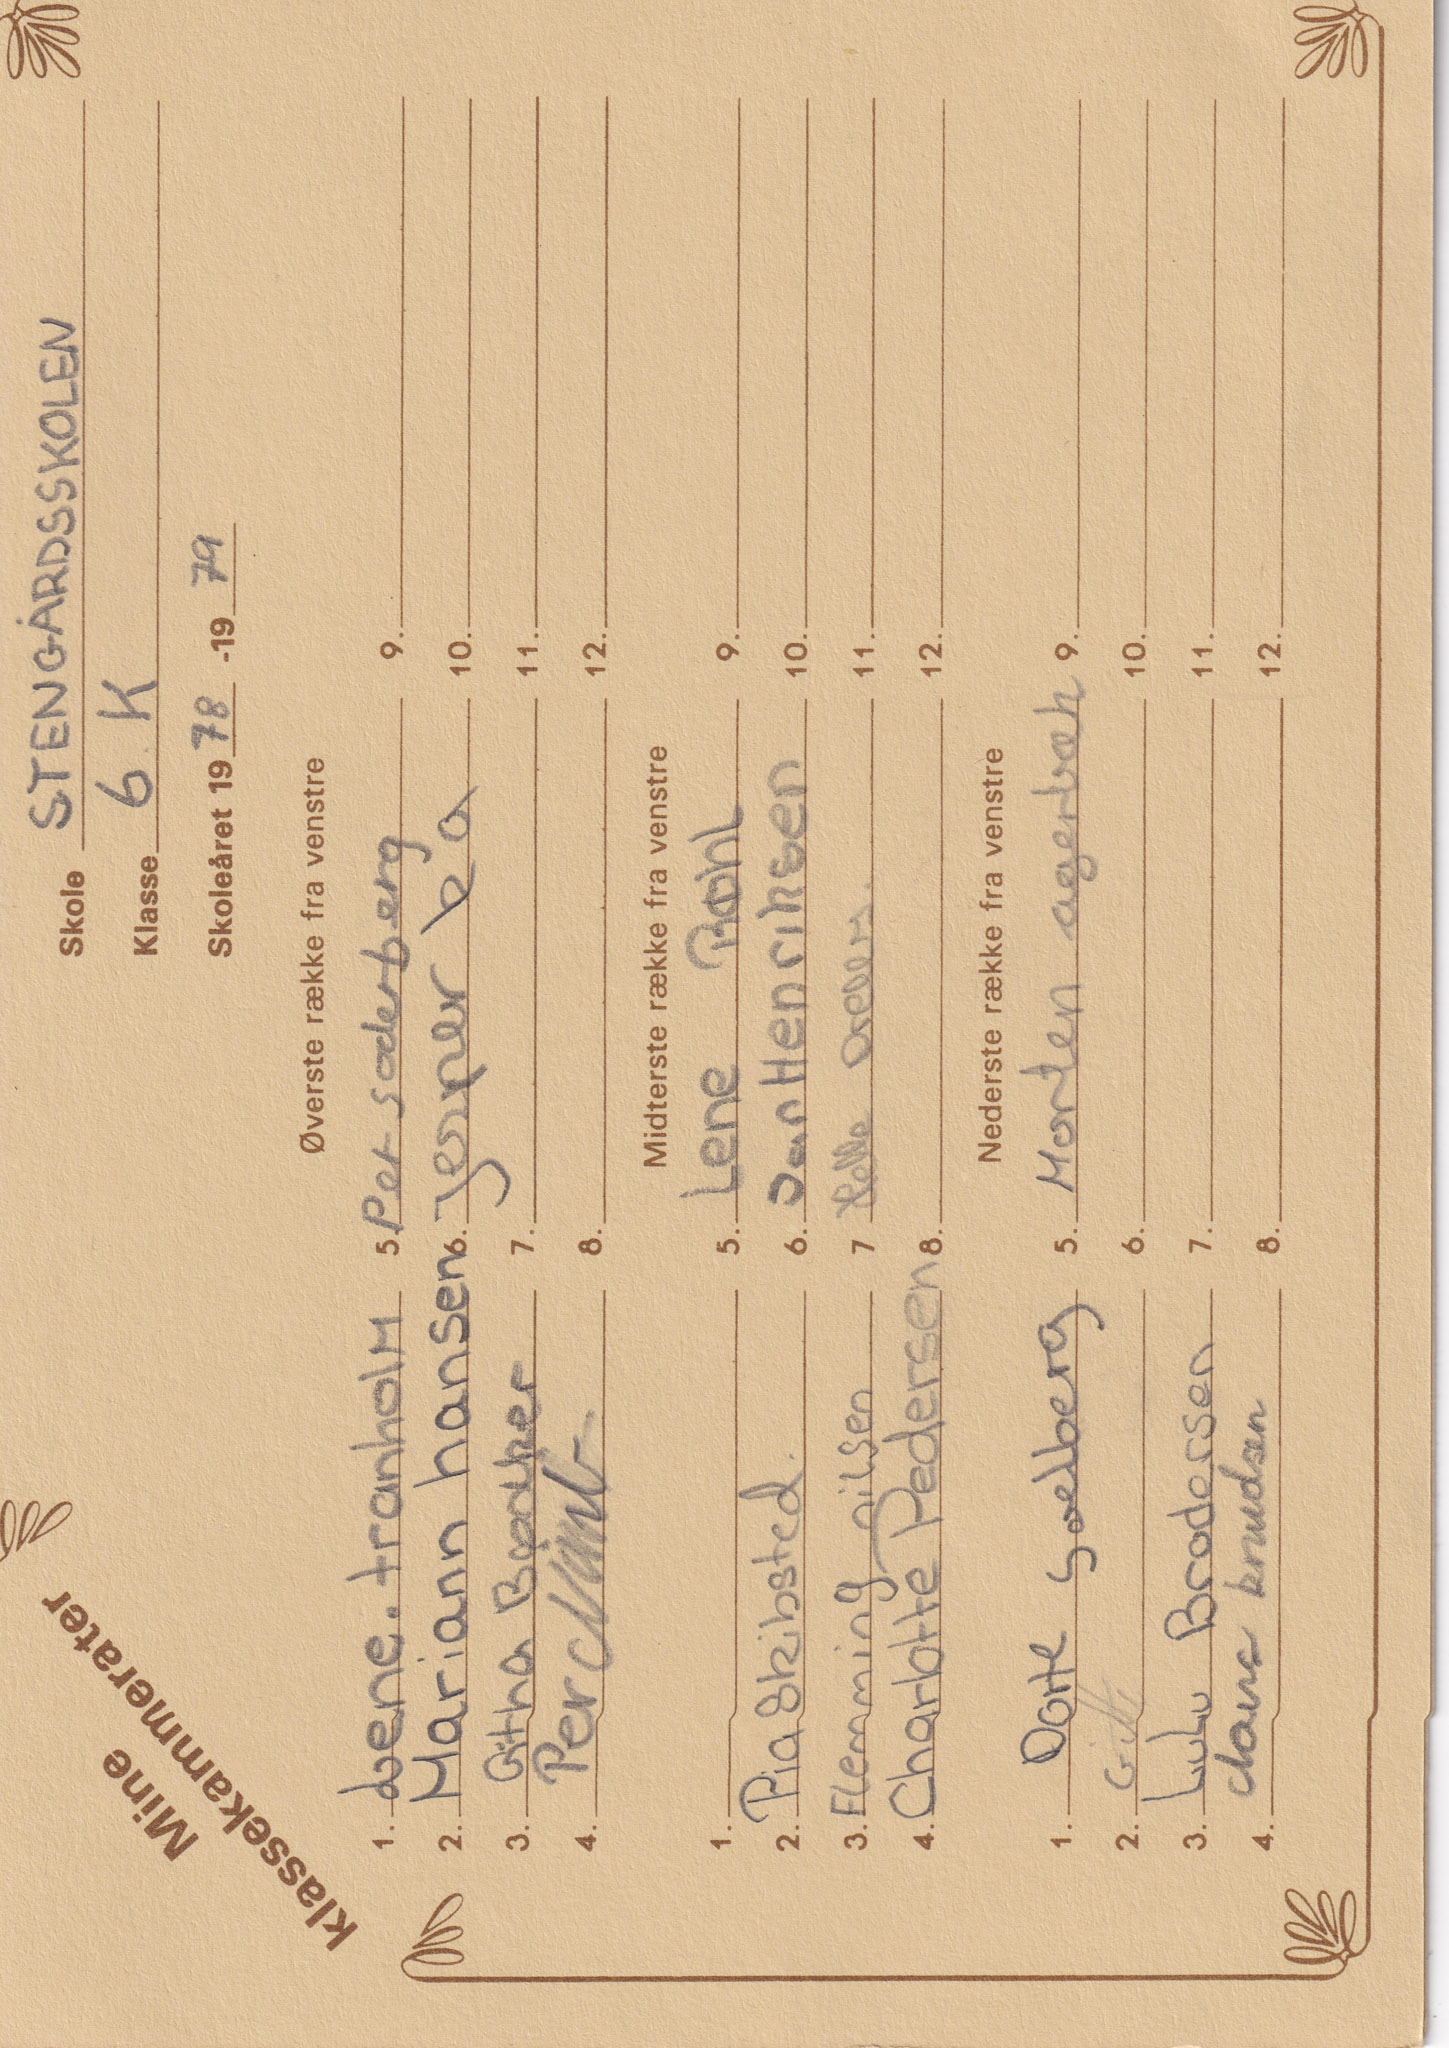 Mine
klassekammerater
Skole STENGÅRDSSKOLEN
Klasse 6. K
Skoleåret 1978 -1979
Øverste række fra venstre
1. Lene. tranholm 5. Per soderberg 9.
2. Mariann hansen 6. Jesper 10.
3. Githa 7. 11.
4. Per 8. 12.
Midterste række fra venstre
1. 5. Lene 9.
2. Pia Skibsted. 6. Jan Henriksen 10.
3. Flemming nilsen 7 Helle 11.
4. Charlotte Pedersen 8. 12.
Nederste række fra venstre
1. Dorte 5. Morten agerbæk 9.
2. Gitte 6. 10.
3. Lulu Brodersen 7. 11.
4. claus knudsen 8. 12.